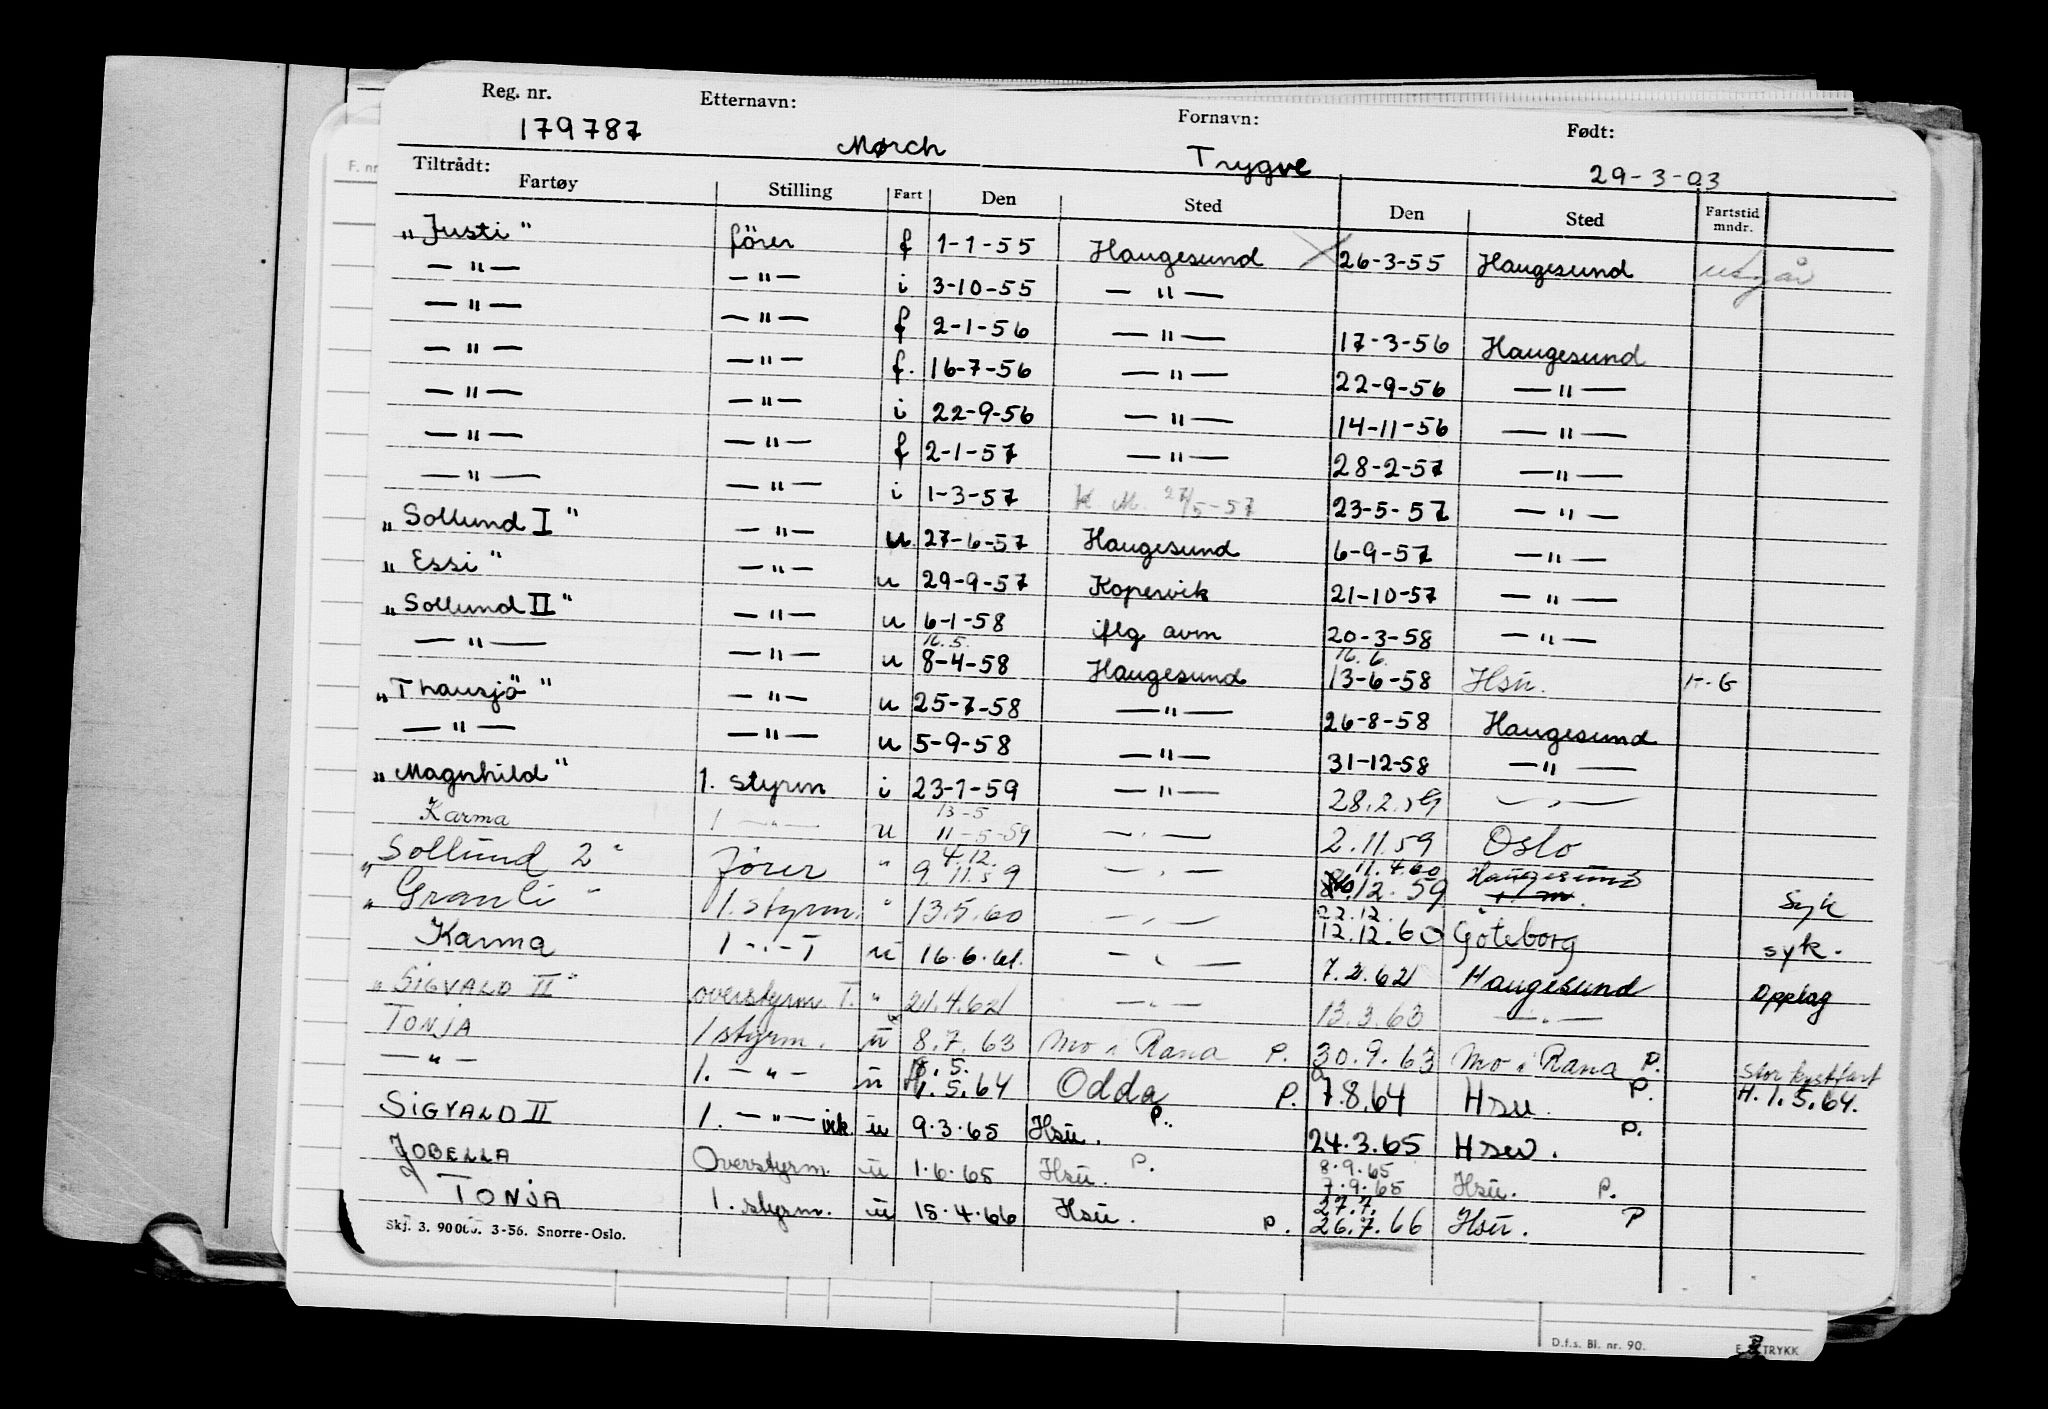 Reg. nr. Etternavn: Fornavn: Født:
179787 Mørch Trygve 29-3-03
Tiltrådt:
Fartøy Stilling Fart Den Sted Den Sted Fartstid mndr.
"Justi" förer f 1-1-55 Haugesund 26-3-55 Haugesund utgår
— " — — " — i 3-10-55 — " —
— " — — " — f 2-1-56 — " — 17-3-56 Haugesund
— " — — " — f. 16-7-56 — " — 22-9-56 — " —
— " — — " — i 22-9-56 — " — 14-11-56 — " —
— " — — " — f 2-1-57 — " — 28-2-57 — " —
— " — — " — i 1-3-57 K M. 27/5-57 23-5-57 — " —
"Sollund I" — " — u. 27-6-57 Haugesund 6-9-57 — " —
"Essi" — " — u 29-9-57 Kopervik 21-10-57 — " —
"Sollund II" — " — u 6-1-58 iflg avm 20-3-58 — " —
16.5. 16.6.
— " — — " — u 8-4-58 Haugesund 13-6-58 Hsu. H-G
"Thausjö" — " — u 25-7-58 — " — 26-8-58 Haugesund
— " — — " — u 5-9-58 — " — 31-12-58 — " —
"Magnhild" 1. styrm i 23-1-59 — " — 28.2.59 — " —
13-5
Karma 1 — " — u 11-5-59 — " — 2.11.59 Oslo
4.12. 11.4.60 Haugesund
"Sollund 2" förer " 9.11.59 — " — 12.59 Syk
22.12.
"Granli" 1. styrm. " 13.5.60 — " — 12.12.60 Göteborg syk.
Karma 1 — " — T u 16.6.61. — " — 7.2.62 Haugesund Opplag
"SIGVALD II" overstyrm T. " 21.4.62 — " — 13.3.63 — " —
TONJA 1 styrm. u 8.7.63 Mo i Rana P. 30.9.63 Mo i Rana P. Stor kystfart
— " — 1. — " — u 1.5.64 Odda P. 7.8.64 Hsu. P. H. 1.5.64.
SIGVALD II 1. — " — vik. u 9.3.65 Hsu. P. 24.3.65 Hsu. P.
8.9.65
JOBELLA Overstyrm. u 1.6.65 Hsu. P. 7.9.65 Hsu. P.
27.7.
TONJA 1. styrm. u 15.4.66 Hsu. P. 26.7.66 Hsu. P
Skj. 3. 3-56. Snorre-Oslo.
D.f.s. Bl. nr. 90. TRYKK
F. nr